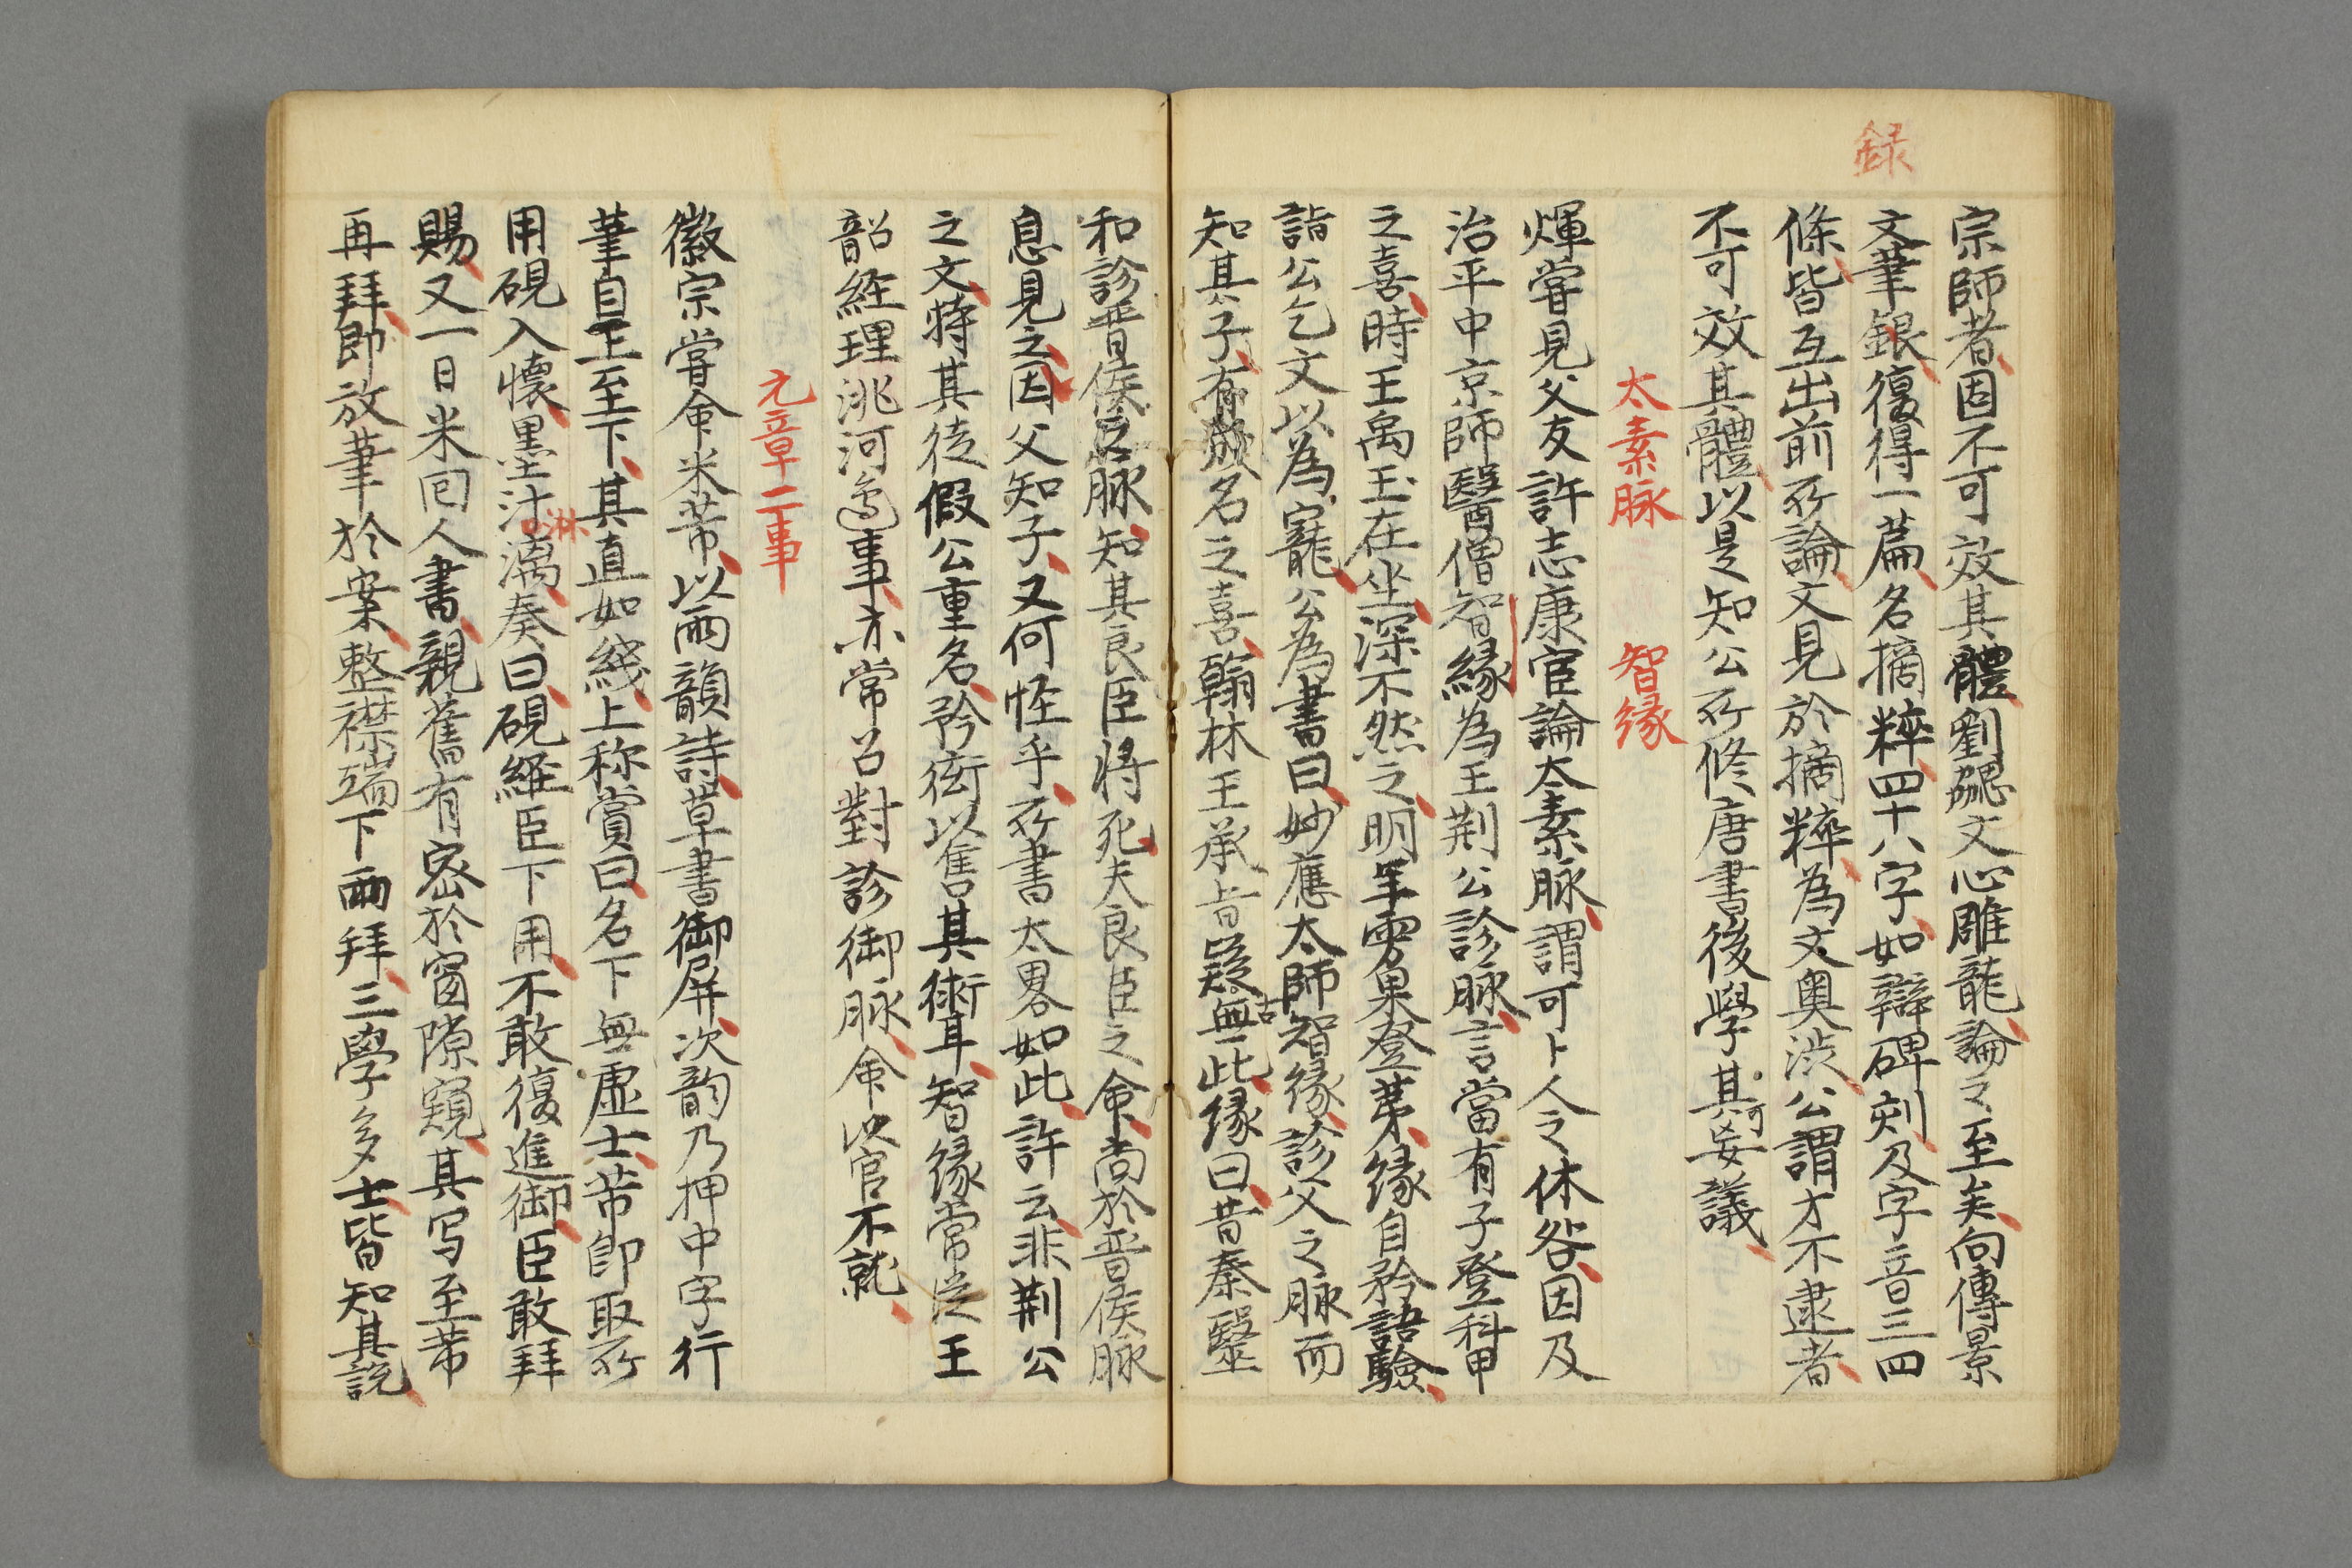 録
宗師者固不可效其體劉勰文心雕龍論之至矣向傳景
文筆銀復得一篇名摘粹四十八字如辯碑刻及字音三四
條皆互出前所論文見於摘粹為文奥渋公謂才不逮者
不可效其體以是知公所修唐書後學其可妄議
太素脉 智縁
煇嘗見父友許志康宦論太素脉謂可卜人之休咎因及
治平中京師醫僧智縁為王荆公診脉言當有子登科甲
之喜時王禹玉在坐深不然之明年雱果登第縁自矜語驗
詣公乞文以為寵公為書曰妙應太師智縁診父之脉而
知其子有成名之喜翰林王承旨疑古無此縁曰昔秦毉
和診晋侯之脉知其良臣将死夫良臣之命尚於晋侯脉
息見之因父知子又何怪乎所書太畧如此許云非荆公
之文特其徒假公重名矜衒以售其術耳智縁常從王
韶経理洮河邉事亦常召對診御脉命以官不就
元章二事
徽宗嘗命米芾以兩韻詩草書御屏次韵乃押中字行
筆自上至下其直如綫上称賞曰名下無虚士芾即取所
用硯入懷墨汁淋漓奏曰硯経臣下用不敢復進御臣敢拜
賜又一日米囘人書親舊有密於窗隙窺其写至芾
再拜即放筆於案整襟端下兩拜三學多士皆知其説